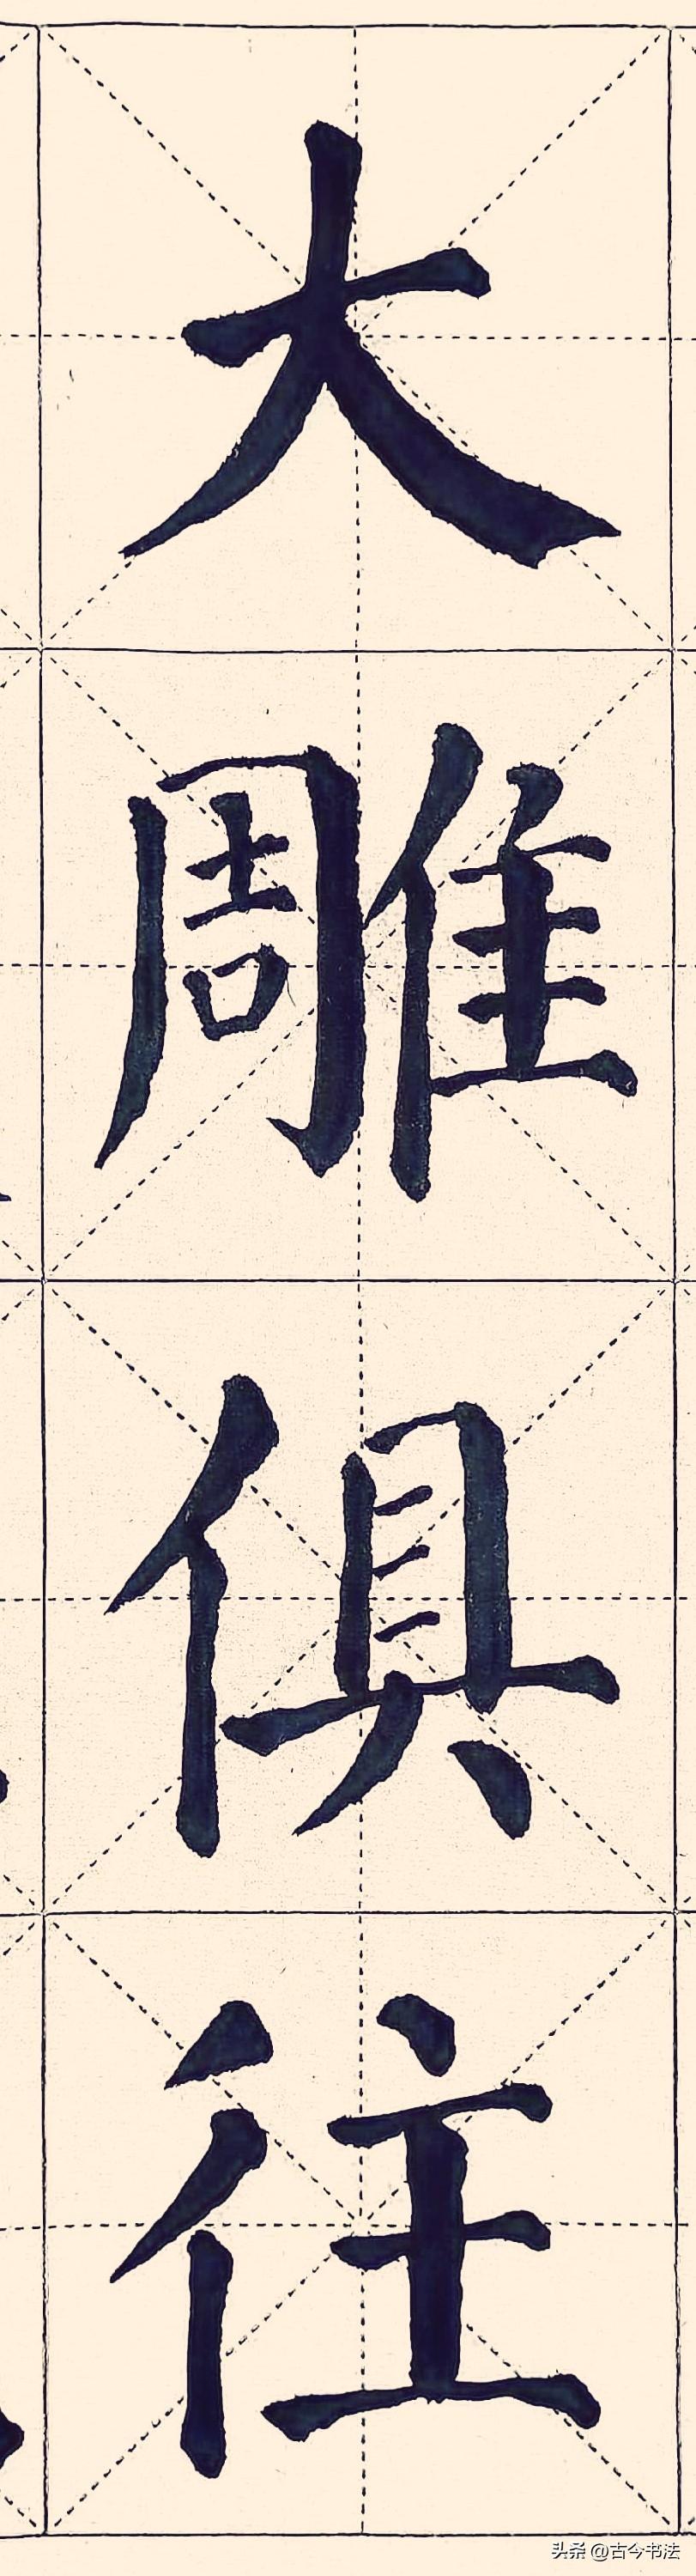 大雕俱往
头条 @古今书法